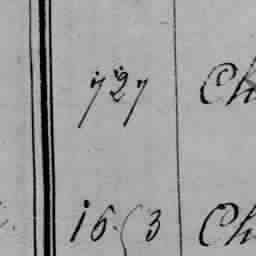 727 Ch
1653 Ch